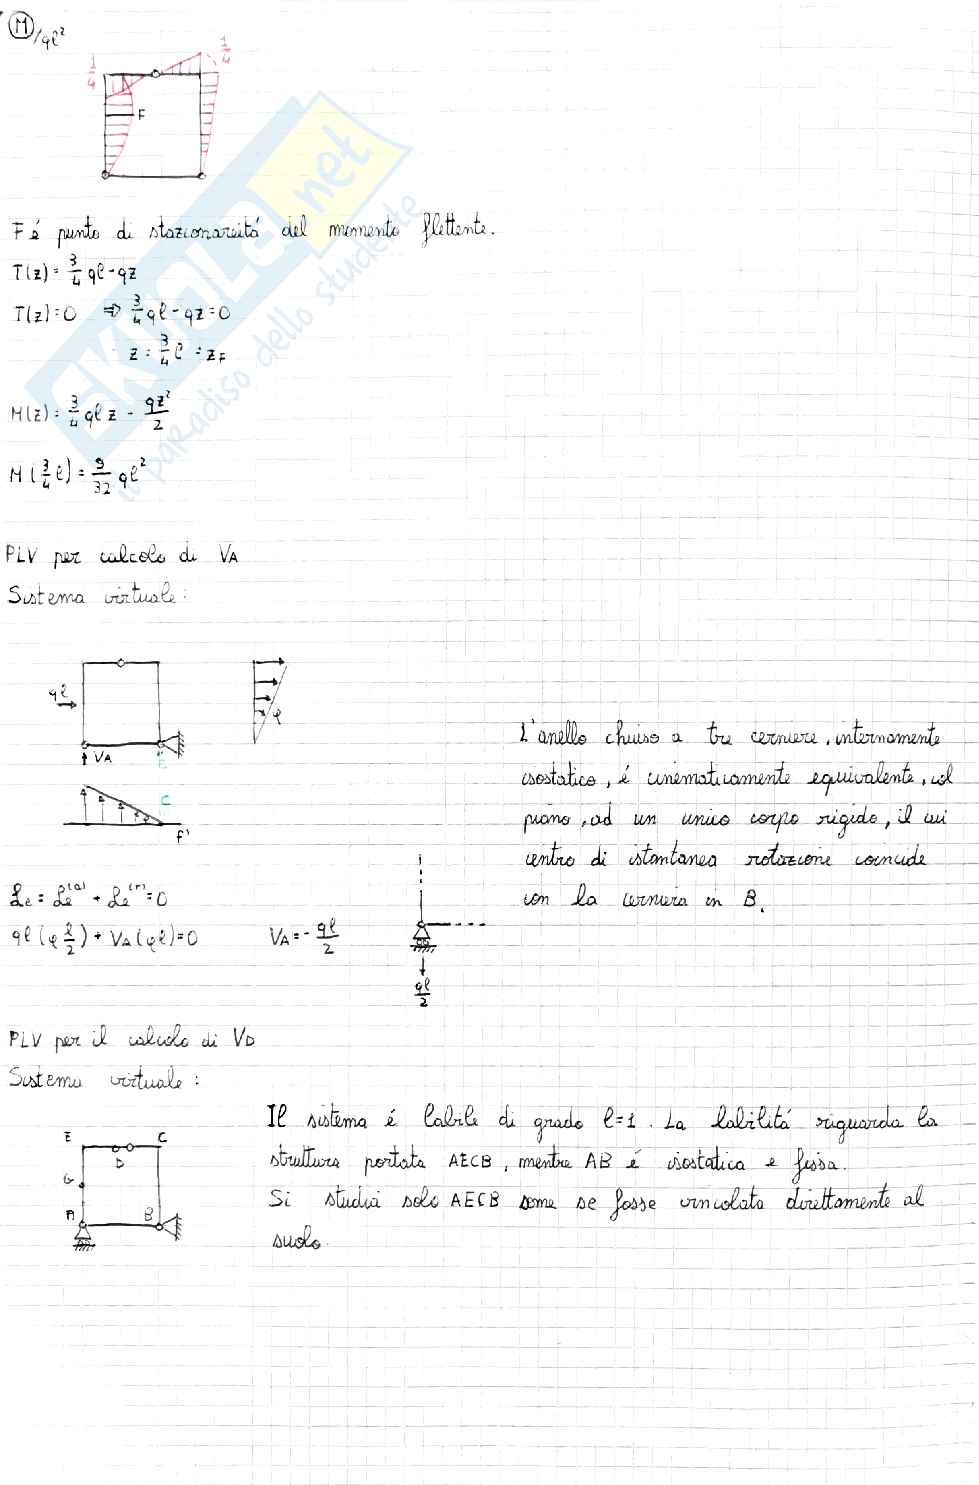 M /qℓ²
1/4 1/4
F
F é punto di stazionareitá del momento flettente.
T(z) = 3/4 qℓ - qz
T(z) = 0 ⇒ 3/4 qℓ - qz = 0
z = 3/4 ℓ = zF
M(z) = 3/4 qℓ z - qz²/2
M(3/4 ℓ) = 9/32 qℓ²
SKUOLA.net
il paradiso dello studente
PLV per calcolo di VA
Sistema virtuale:
qℓ
φ
VA
C
F'
L'anello chiuso a tre cerniere, internamente
isostatico, é cinematicamente equivalente, col
piano, ad un unico corpo rigido, il cui
centro di istantanea rotazione coincide
con la cerniera in B.
Le = Le(a) + Le(r) = 0
qℓ (φ ℓ/2) + VA (φℓ) = 0 VA = - qℓ/2
qℓ/2
PLV per il calcolo di VD
Sistema virtuale:
E C
D
G
A B
Il sistema é labile di grado ℓ=1. La labilitá riguarda la
struttura portata AECB, mentre AB é isostatica e fissa.
Si studia solo AECB come se fosse vincolata direttamente al
suolo.